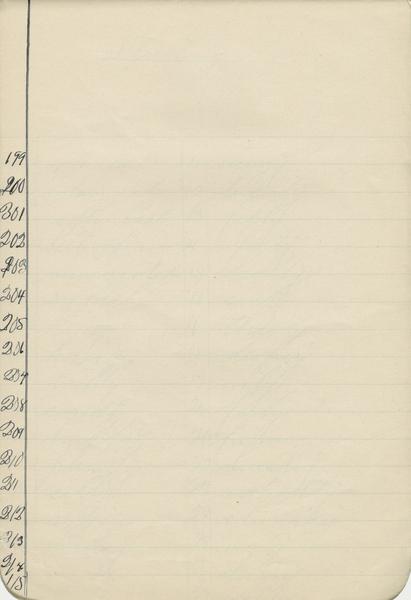 199
200
201
202
203
204
205
206
207
208
209
210
211
212
213
214
15